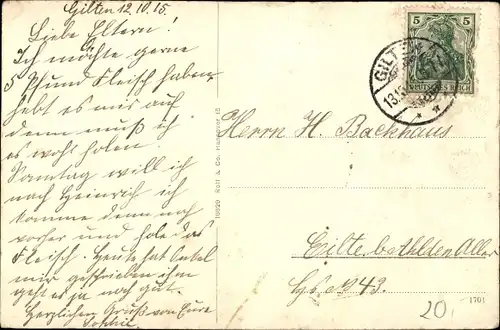 Gilten 12.10.15.
Liebe Eltern!
Ich möchte gerne
5 Pfund Fleisch haben,
hebt es mir auf
denn muß ich
es wohl holen.
Sonntag will ich
nach Heinrich ich
komme denn noch
vorher und hole das
Fleisch. Heute hat
mir geschrieben ihm
geht es ja noch gut.
Herzlichen Gruß von Eure
Sophie
5 5
DEUTSCHES REICH
GILTEN
13.10
10020 Roll & Co. Hannover 15
Herrn H. Backhaus
Eilte b. Ahlden Aller
Hs No 43.
1701
20,